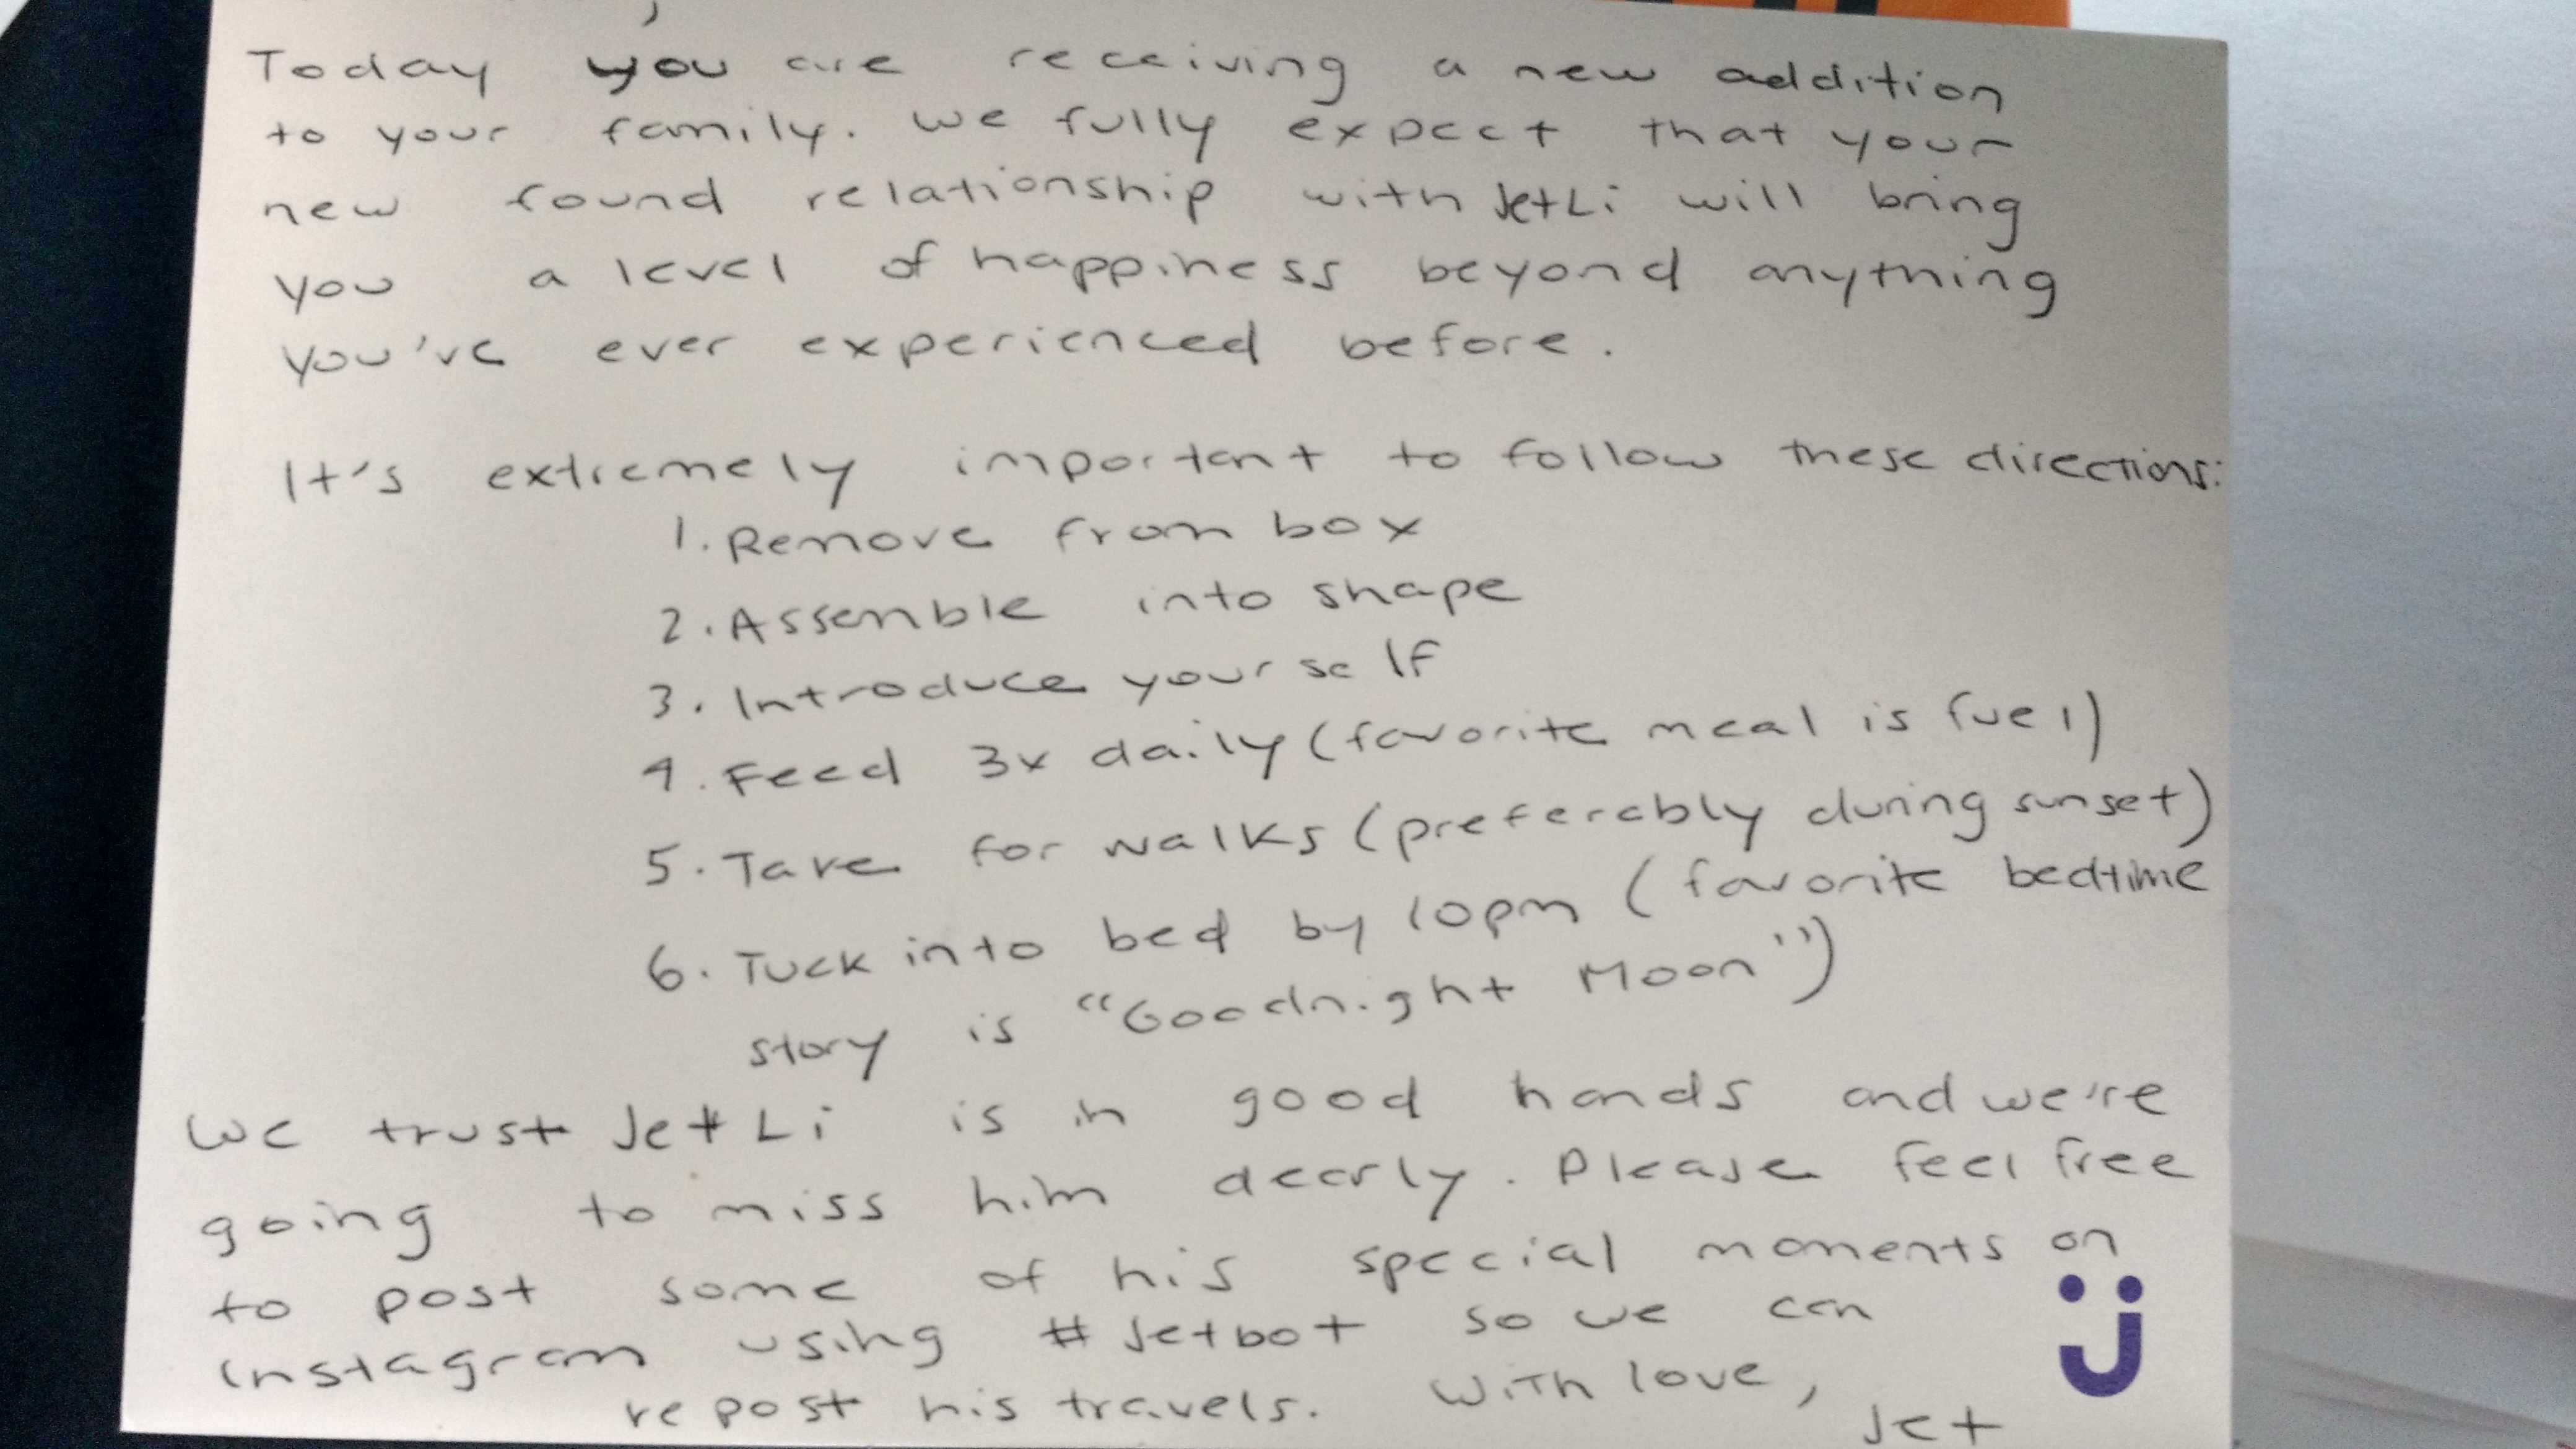 Today you are receiving a new addition
to your family. We fully expect that your
new found relationship with Jet Li will bring
you a level of happiness beyond anything
you've ever experienced before.
It's extremely important to follow these directions:
1. Remove from box
2. Assemble into shape
3. Introduce yourself
4. Feed 3x daily (favorite meal is fuel)
5. Take for walks (preferably during sunset)
6. Tuck into bed by 10pm (favorite bedtime
story is "Goodnight Moon")
We trust Jet Li is in good hands and we're
going to miss him dearly. Please feel free
to post some of his special moments on
Instagram using #Jetbot so we can
repost his travels. With love,
Jet